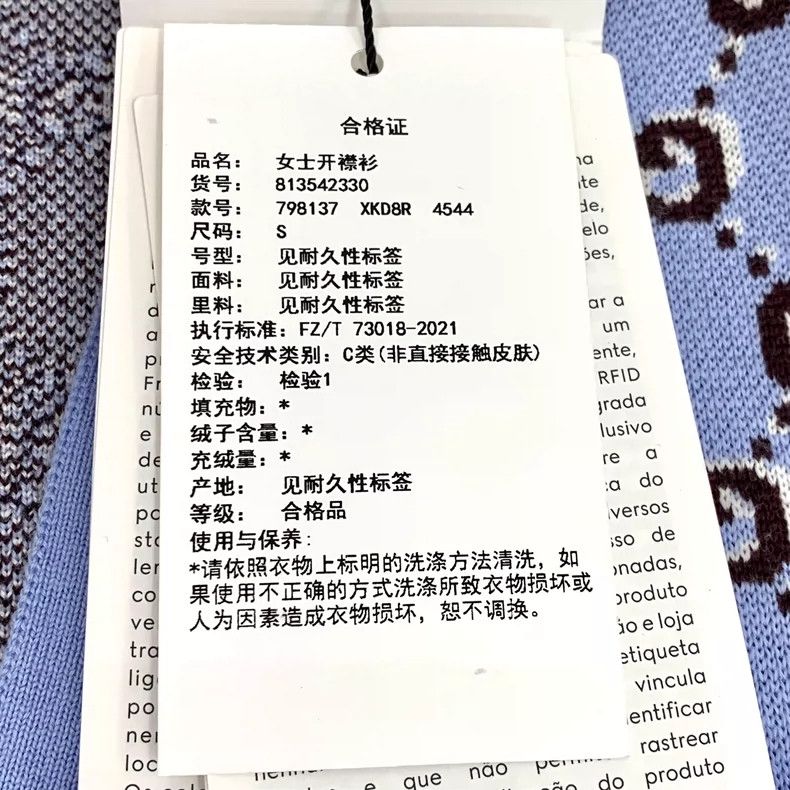 合格证
品名： 女士开襟衫
货号： 813542330
款号： 798137 XKD8R 4544
尺码： S
号型： 见耐久性标签
面料： 见耐久性标签
里料： 见耐久性标签
执行标准：FZ/T 73018-2021
安全技术类别：C类(非直接接触皮肤)
检验： 检验1
填充物：*
绒子含量：*
充绒量：*
产地： 见耐久性标签
等级： 合格品
使用与保养:
*请依照衣物上标明的洗涤方法清洗，如
果使用不正确的方式洗涤所致衣物损坏或
人为因素造成衣物损坏，恕不调换。
ar a
um
RFID
re a
do
produto
ão e loja
etiqueta
vincula
rastrear
e que não
do produto